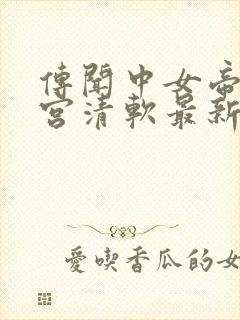 傳聞中女帝
宮清軟最新
愛喫香瓜的女